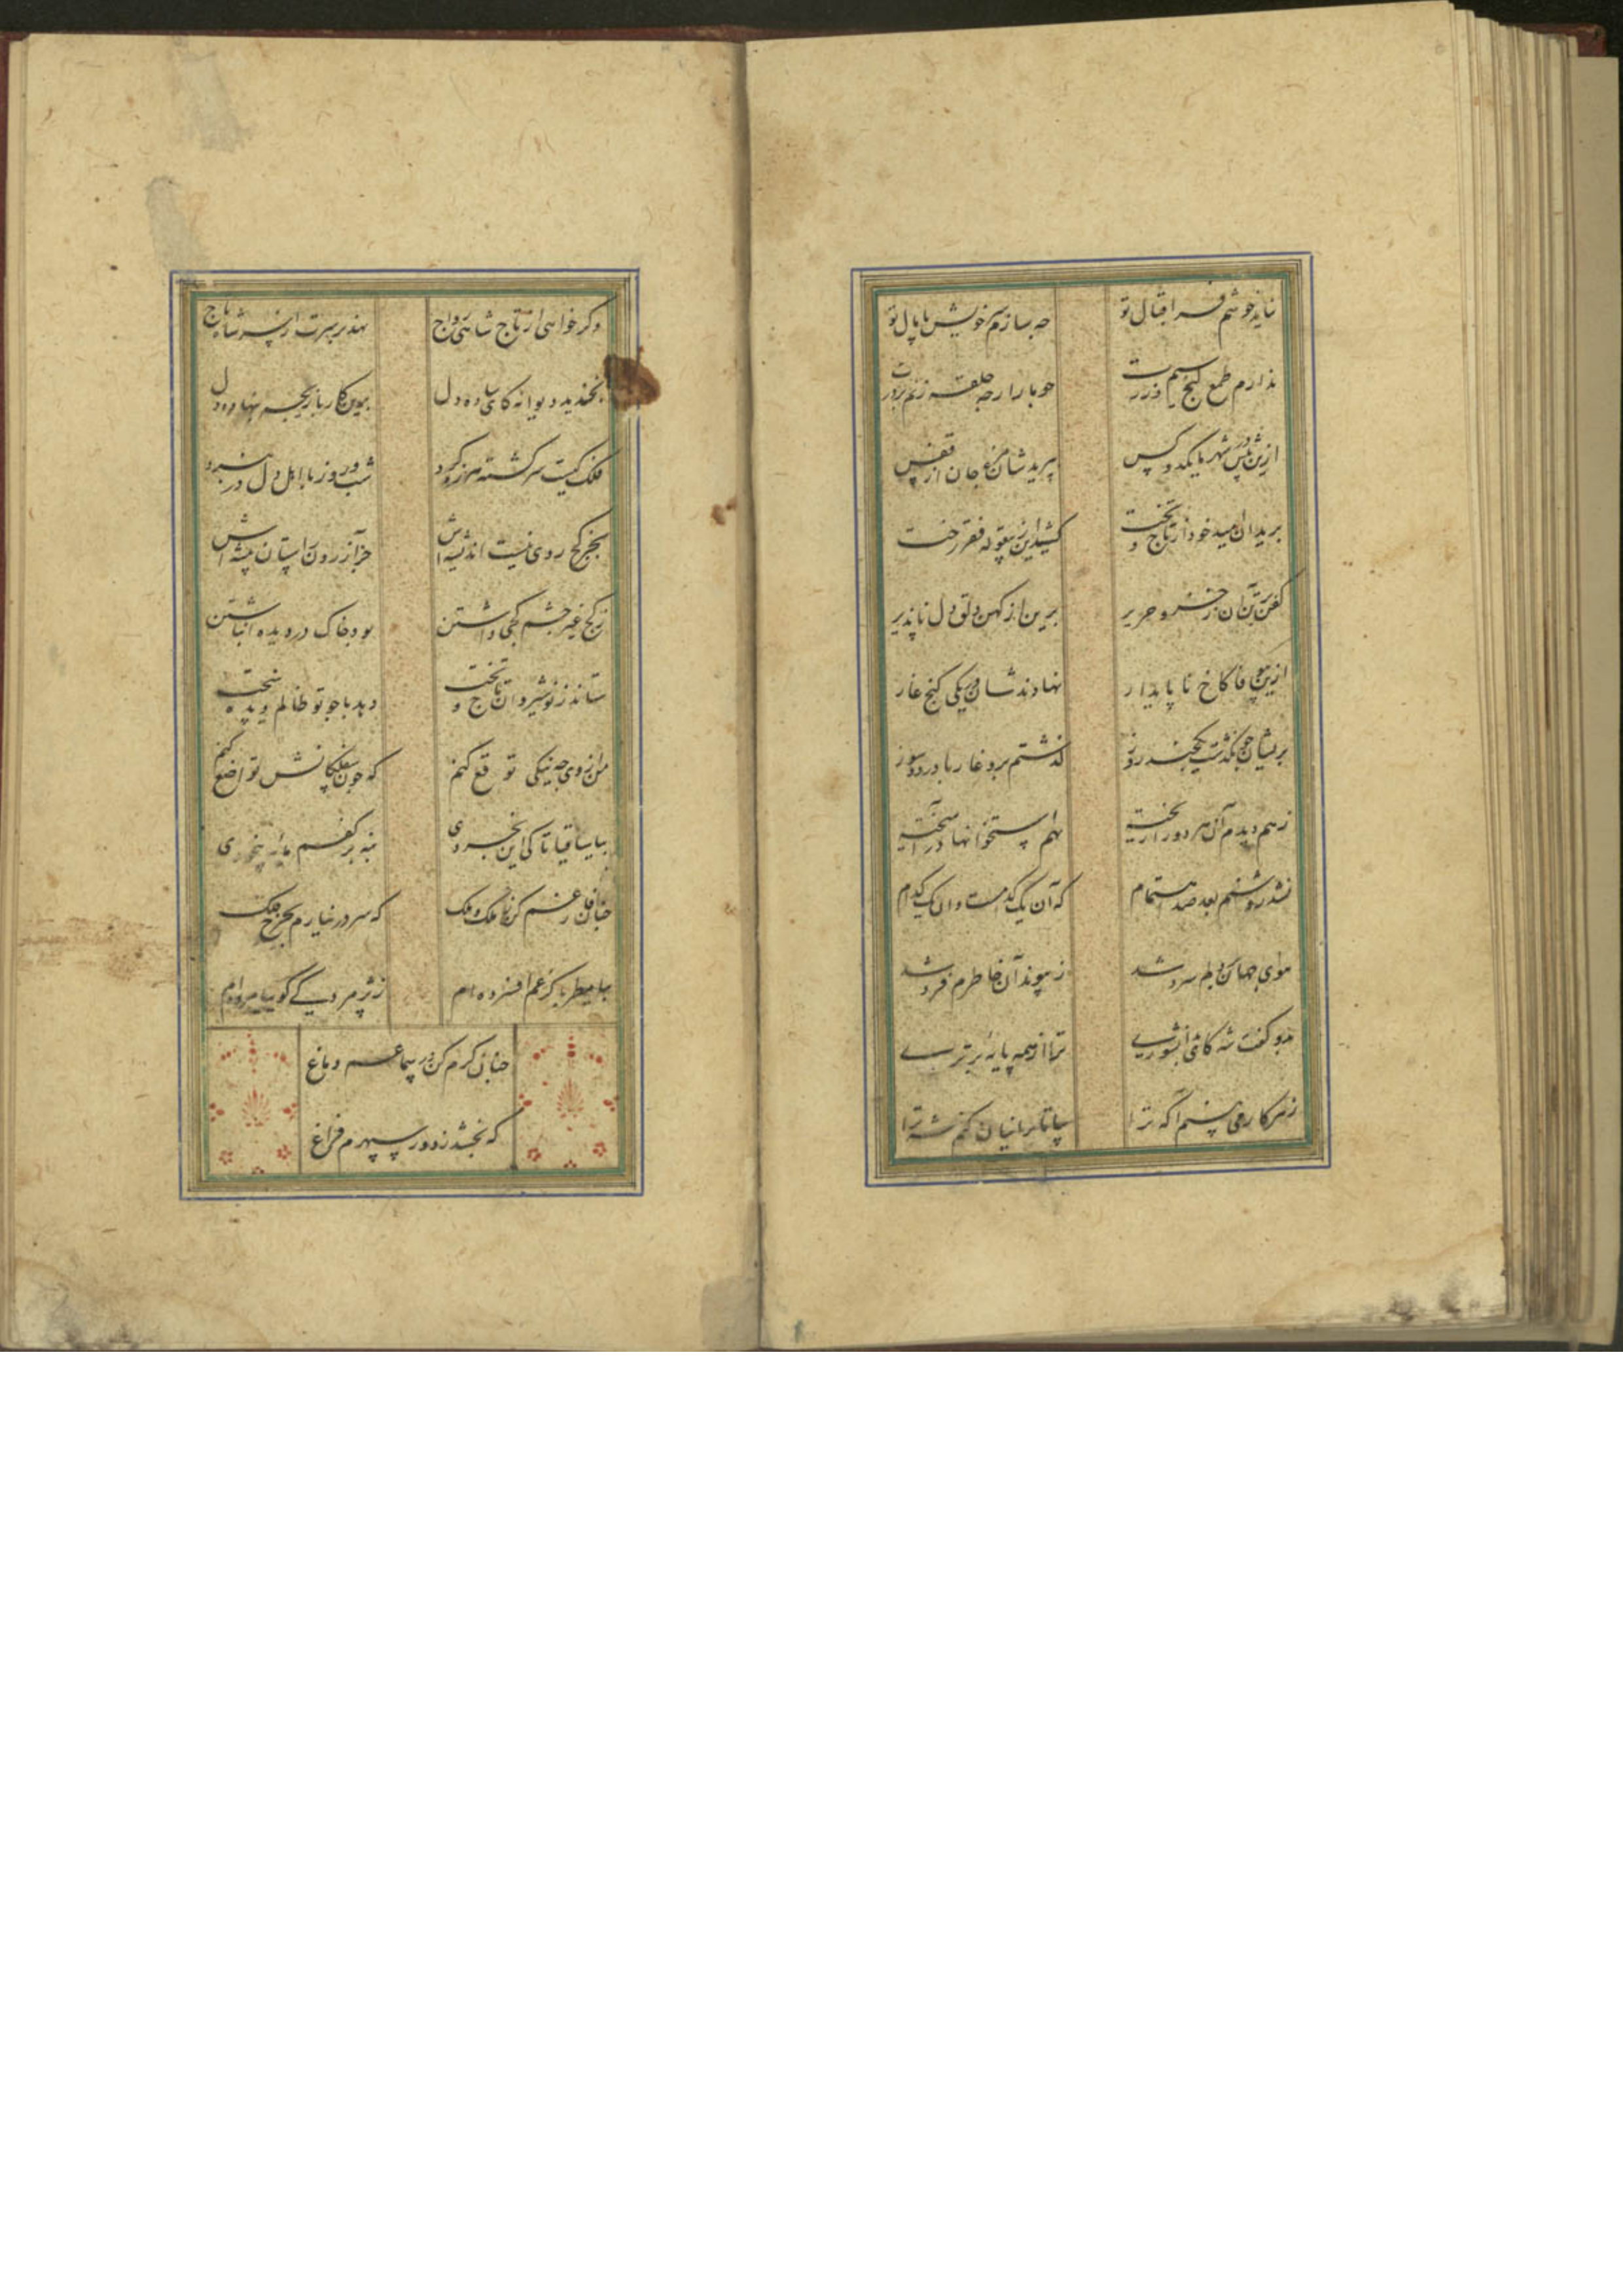 نیاید خوشم فر اقبال تو چه سازم سر خویش پامال تو
ندارم طمع گنج سیم و زرت چو مار ارچه حلقه زنم بر درت
ازین پیش در شهر ما یکدو کس پرید شان مرغ جان از قفس
برید آن امید خود از تاج و تخت کشید این ز بیغوله فقر رخت
کفن بر تن آن ز خز و حریر برین از کهن دلق دل ناپذیر
ازین بیوفا کاخ ناپایدار نهادند شان در یکی کنج غار
بریشان چو بگذشت یکچند روز گذشتم برو غار با درد و سوز
ز هم دیدم آن هر دو را ریخته بهم استخوانها در آمیخته
نشد روشنم بعد صد اهتمام که آن یک کدامست وان یک کدام
هوای جهان بر دلم سرد شد ز پیوند آن خاطرم فرد شد
بدو گفت شه کاشی بشوریی ترا از همه پایه برتریی
ز هر کار می بینم اکه ترا بیا تا بر اینان کنم شه ترا
و گر خواهی از تاج شاهی رواج نهد بر سرت ارزه شاه تاج
بخندید دیوانه کای ساده دل برین کار بازیچه بنهاده دل
فلک کیست سرگشته هرزه کرد شب و روز با اهل دل در نبرد
بجز کج روی نیست اندیشه اش جز آزردن راستان پیشه اش
ز کج غیر چشم کجی داشتن بود خاک در دیده انباشتن
ستاند ز نوشیروان تاج و تخت دهد با چو تو ظالم دیده سخت
من از وی چه نیکی توقع کنم که چون سفلگانش تواضع کنم
بیا ساقیا تا کی این بخردی بنه بر کفم مایه بیخودی
چنان فارغم کن ز ملک و ملک که سر در نیارم بچرخ فلک
بیا مطربا کز غم افسرده ام ز پژمردگی گوییا مرده ام
چنان گرم کن در سماعم دماغ
که بخشد ز دور سپهرم فراغ